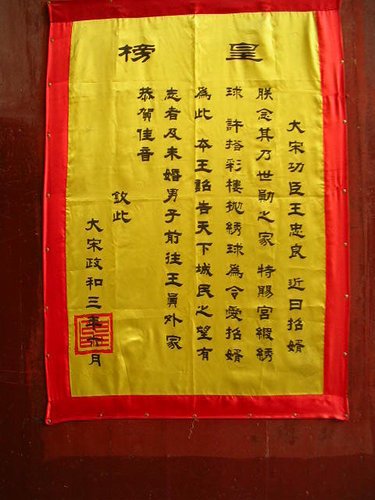 皇榜
大宋功臣王忠良 近日招婿
朕念其乃世勋之家 特賜宮緞綉
球 許搭彩樓抛綉球為令愛招婿
為此 本王詔告天下城民之望有
志者及未婚男子前往王員外家
恭賀佳音
欽此
大宋政和三年六月